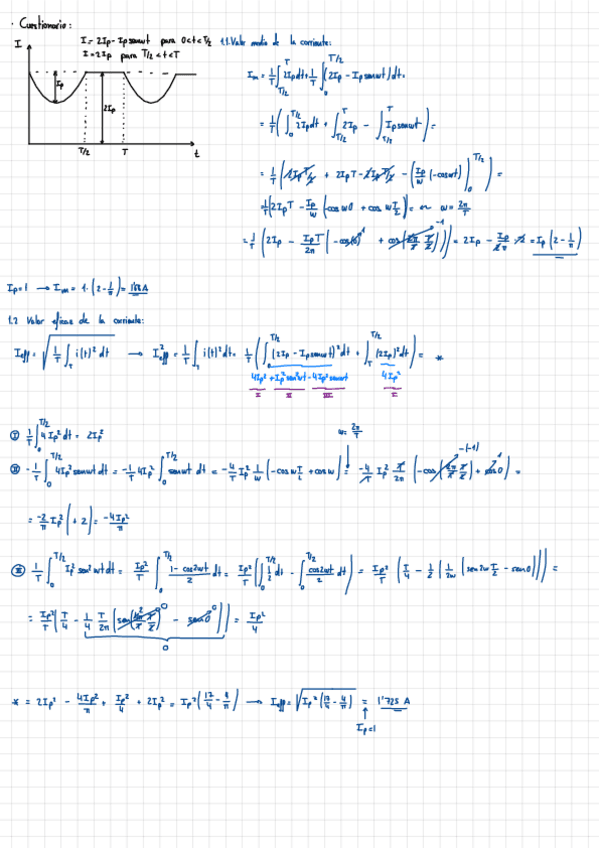 · Cuestionario:
I = 2Ip - Ip senωt para 0<t<T/2
I = 2Ip para T/2<t<T
I
Ip
2Ip
T/2 T t
1.1. Valor medio de la corriente:
Im = 1/T ∫_{T/2}^{T} 2Ip dt + 1/T ∫_0^{T/2} (2Ip - Ip senωt) dt =
= 1/T ( ∫_0^{T/2} 2Ip dt + ∫_{T/2}^{T} 2Ip - ∫_{T/2}^{T} Ip senωt ) =
= 1/T ( 2Ip T/2 + 2Ip T - 2Ip T/2 - ( Ip/ω (-cosωt) )_0^{T/2} ) =
1/T ( 2Ip T - Ip/ω ( -cos ω0 + cos ω T/2 ) ) = ω = 2π/T
= 1/T ( 2Ip - Ip T/2π ( -cos(0) 1 + cos( 2π/T T/2 ) -1 ) ) = 2Ip - Ip/2π · 2 = Ip ( 2 - 1/π )
Ip=1 → Im = 1 · ( 2 - 1/π ) = 1'68 A
1.2 Valor eficaz de la corriente:
Ieff = √( 1/T ∫_T i(t)² dt ) → I²eff = 1/T ∫_T i(t)² dt = 1/T ( ∫_0^{T/2} (2Ip - Ip senωt)² dt + ∫_0^{T/2} (2Ip)² dt ) = *
4Ip² + Ip² sen²ωt - 4Ip² senωt 4Ip²
I II III I
ω = 2π/T
I 1/T ∫_0^{T/2} 4Ip² dt = 2Ip²
- 1/T ∫_0^{T/2} 4Ip² senωt dt = -1/T 4Ip² ∫_0^{T/2} senωt dt = -4/T Ip² 1/ω ( -cos ω T/2 + cos ω ) = -4/T Ip² T/2π ( -cos( 2π/T T/2 ) -(-1) + cos 0 1 ) =
= -2/π Ip² ( + 2 ) = -4Ip²/π
1/T ∫_0^{T/2} Ip² sen² ωt dt = Ip²/T ∫_0^{T/2} 1 - cos2ωt/2 dt = Ip²/T ( ∫_0^{T/2} 1/2 dt - ∫_0^{T/2} cos2ωt/2 dt ) = Ip²/T ( T/4 - 1/2 ( 1/2ω ( sen2ω T/2 - sen0 ) ) ) =
= Ip²/T ( T/4 - 1/4 T/2π ( sen( 2 2π/T T/2 ) 0 - sen0 0 ) ) = Ip²/4
0
* = 2Ip² - 4Ip²/π + Ip²/4 + 2Ip² = Ip² ( 17/4 - 4/π ) → Ieff = √( Ip² ( 17/4 - 4/π ) ) = 1'725 A
Ip=1